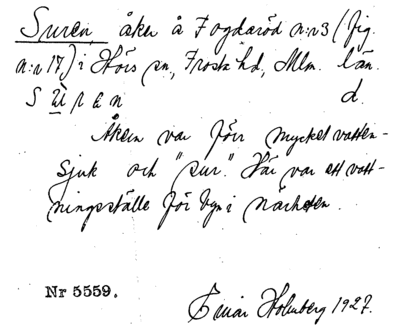 Suren, åker å Fogdaröd n:r 3 (fig.
n:r 17) i Hörs sn, Frosta hd, Mlm. län.
d.
Åkern var förr mycket vatten-
sjuk och "sur". Här var ett vatt-
ningsställe för byn i närheten.
Nr 5559.
Einar Holmberg 1927.